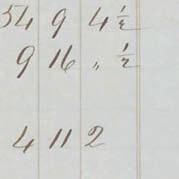 54 9 4 ½
9 16 „ ½
4 11 2